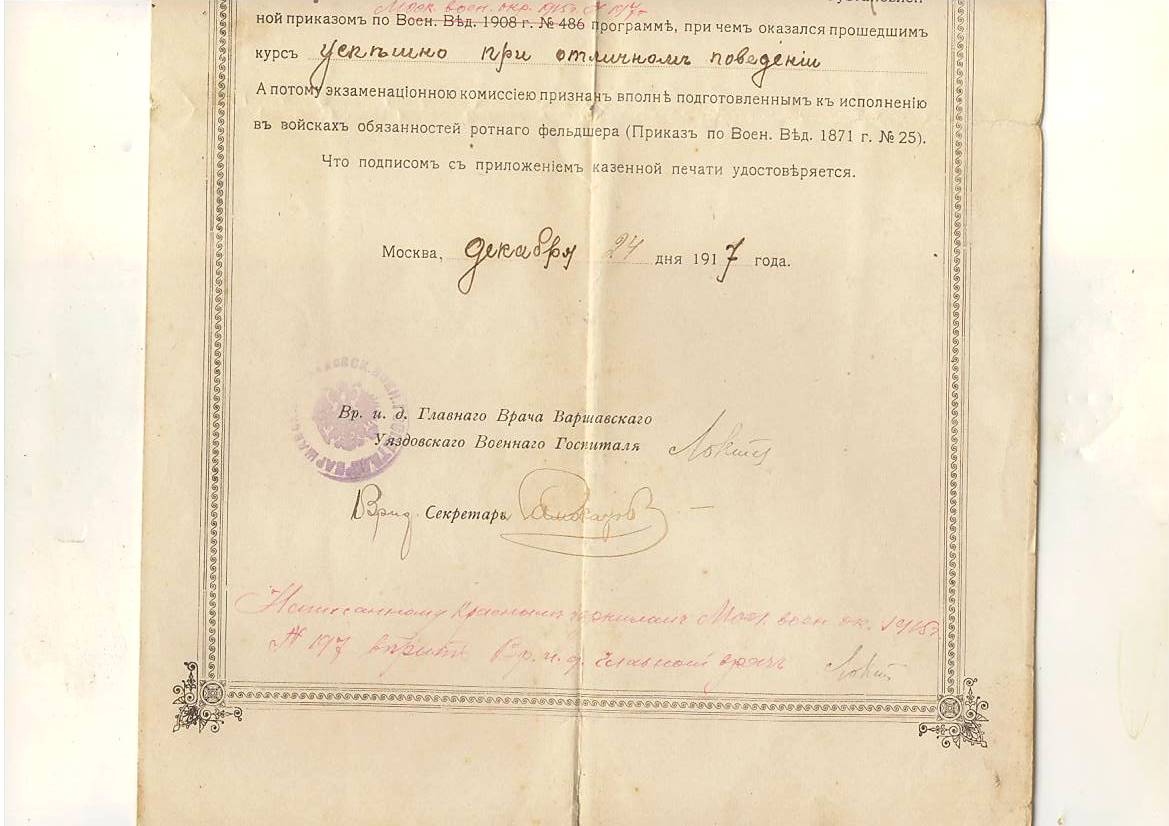 Моск. воен. окр. 1915 г. № 197
ной приказомъ по Воен. Вѣд. 1908 г. № 486 программѣ, при чемъ оказался прошедшимъ
курсъ успѣшно при отличномъ поведеніи
А потому экзаменаціонною комиссіею признанъ вполнѣ подготовленнымъ къ исполненію
въ войскахъ обязанностей ротнаго фельдшера (Приказъ по Воен. Вѣд. 1871 г. № 25).
Что подписомъ съ приложеніемъ казенной печати удостовѣряется.
Москва, декабря 24 дня 1917 года.
Вр. и. д. Главнаго Врача Варшавскаго
Уяздовскаго Военнаго Госпиталя
Врид. Секретарь
Написанному красными чернилами Моск. воен. ок. 1915 г.
№ 197 вѣрить Вр. и. д. главный врачъ